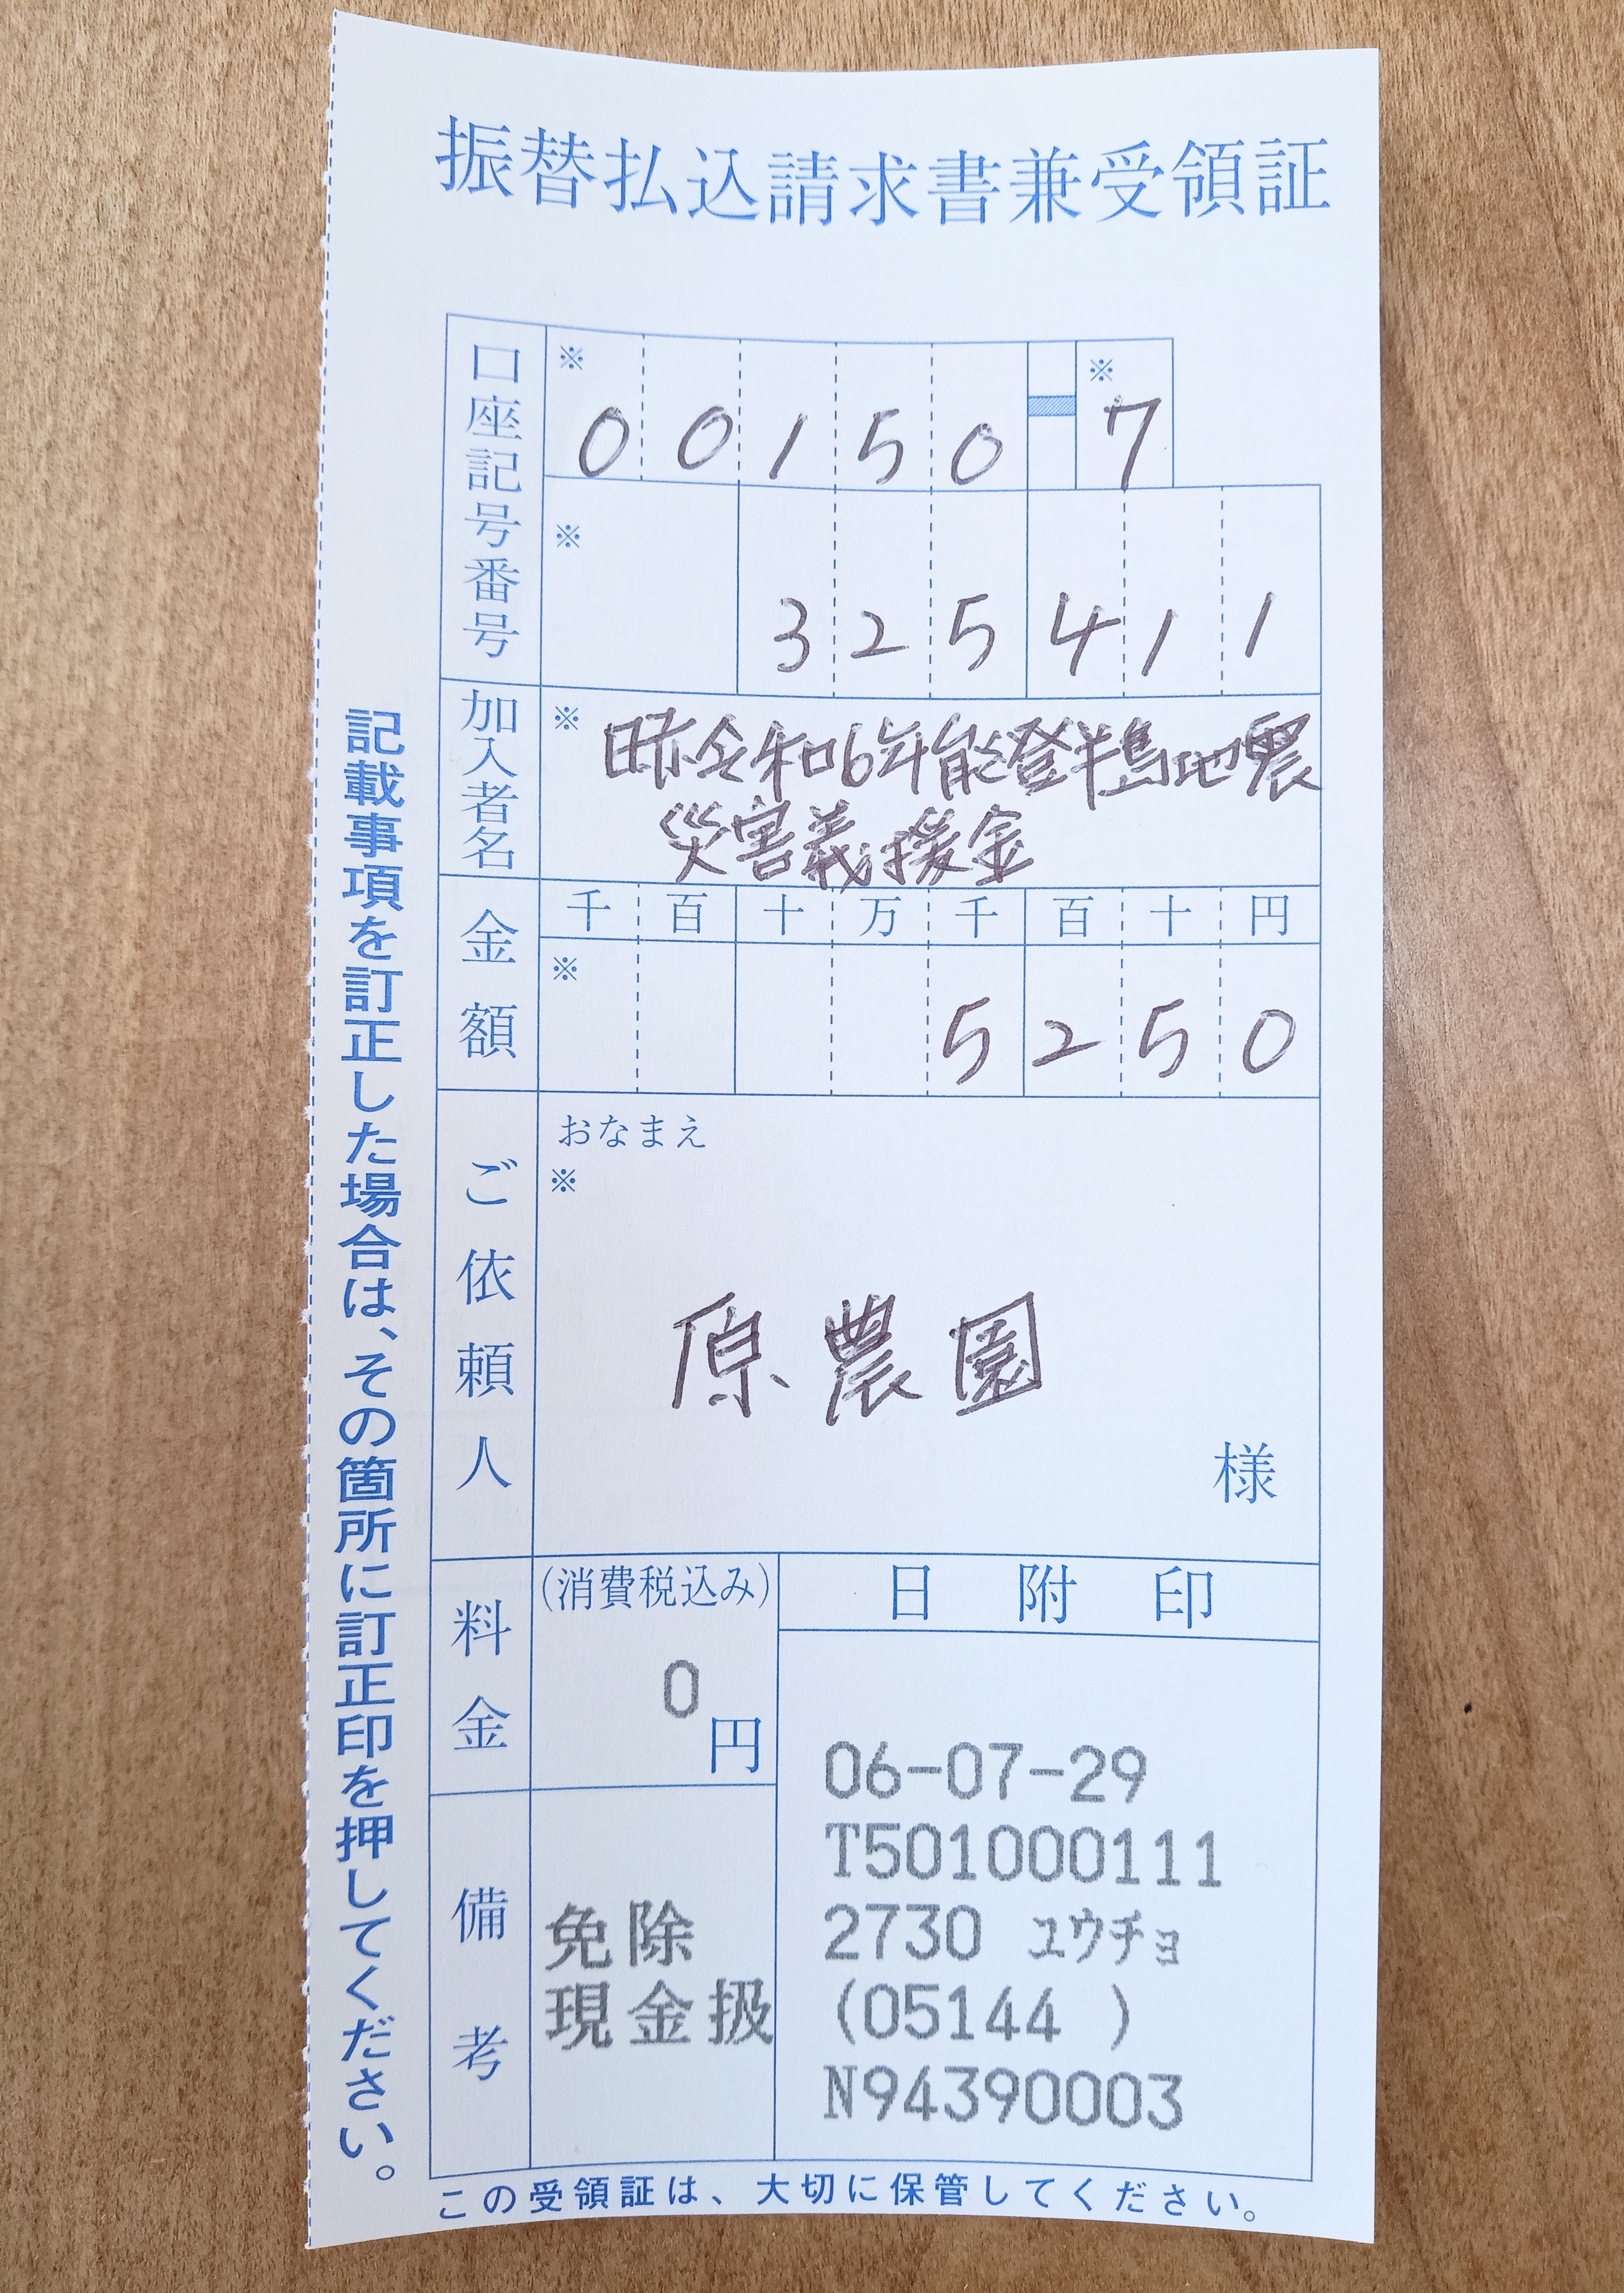 振替払込請求書兼受領証
口座記号番号
※ 00150-※7
※ 325411
加入者名
※ 日赤令和6年能登半島地震
災害義援金
金額
千百十万千百十円
※ 5250
ご依頼人
おなまえ
※
原農園
様
料金
(消費税込み)
0
円
備考
免除
現金扱
日附印
06-07-29
T501000111
2730 ユウチョ
(05144 )
N94390003
記載事項を訂正した場合は、その箇所に訂正印を押してください。
この受領証は、大切に保管してください。